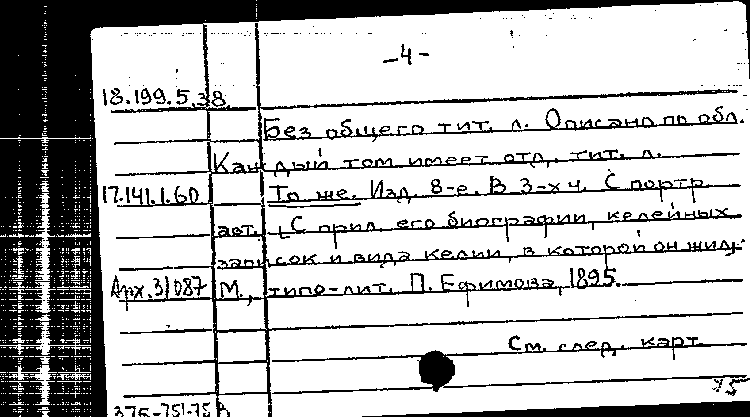 -4-
18.199.5.38.
Без общего тит. л. Описано по обл.
Каждый том имеет отд. тит. л.
17.141.1.60 То же. Изд. 8-е. В 3-х ч. С портр.
авт. С прил. его биографии, келейных
записок и вида келии, в которой он жил.
Арх.31087 М., типо-лит. П. Ефимова, 1895.
См. след. карт.
75
375-751-75